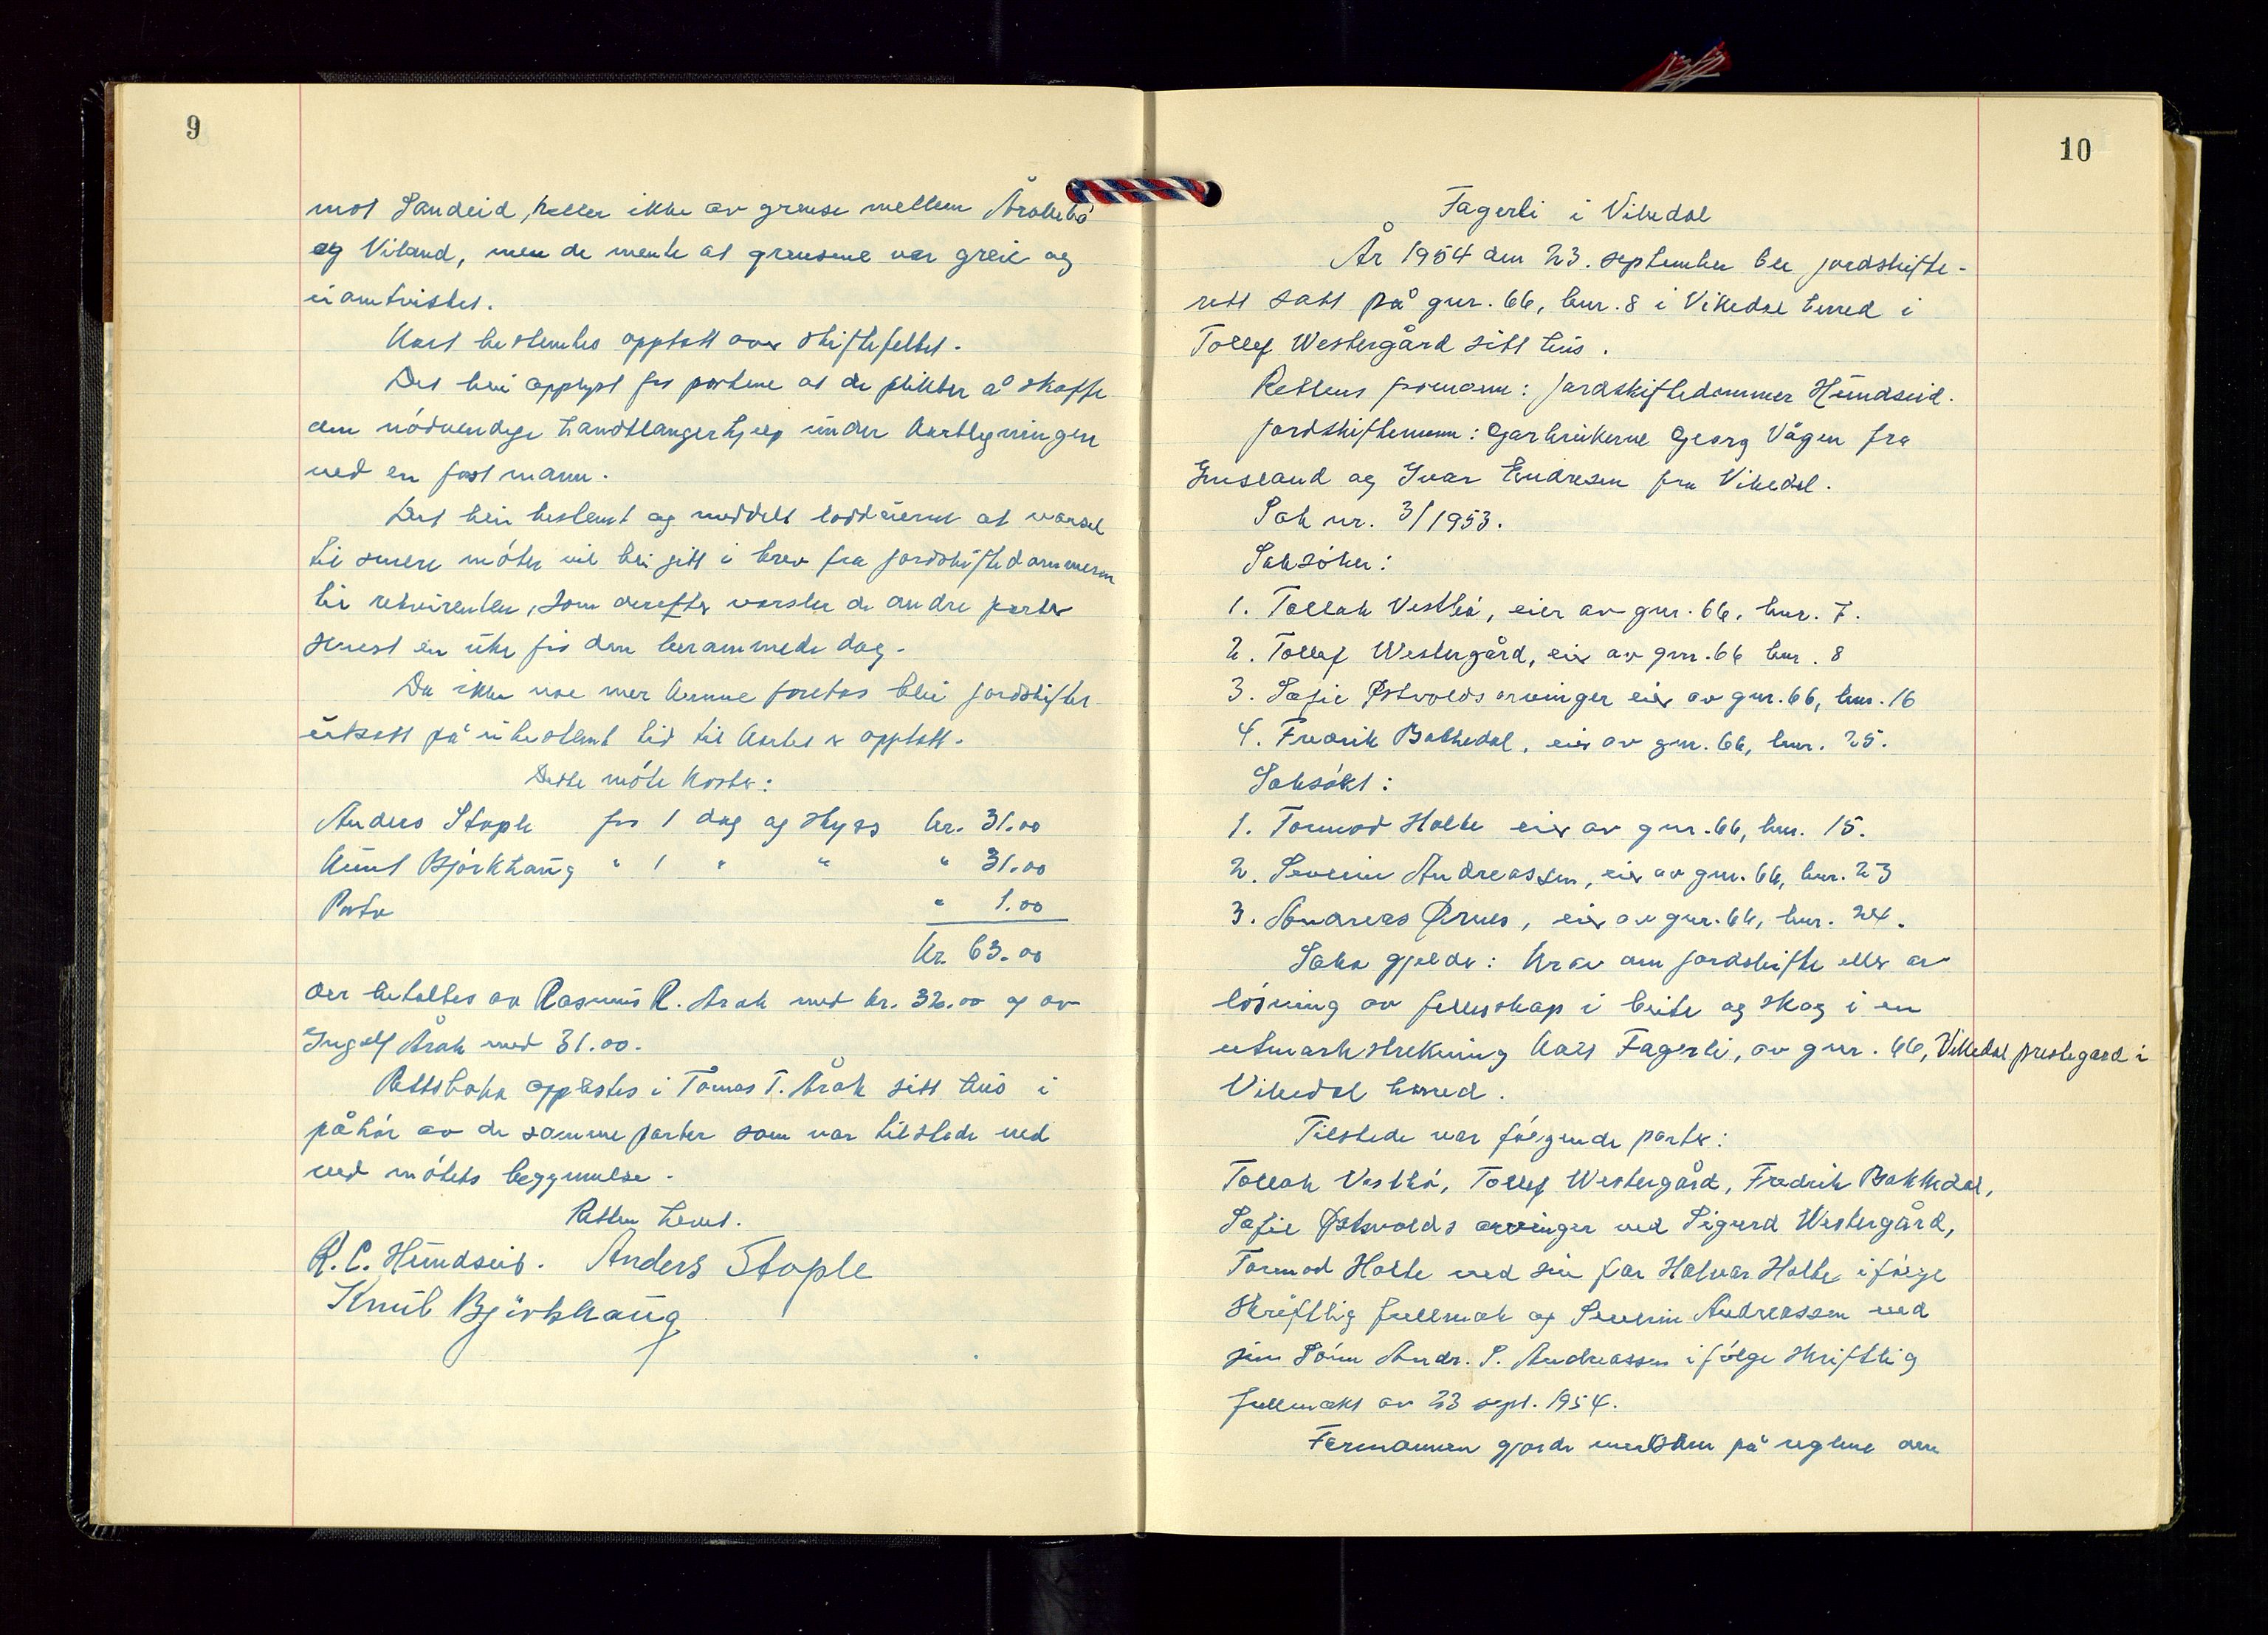 9
mot Sandeid, heller ikke av grense mellem Årakebø
og Viland, men de mente at grensene var greie og
uomtvistet.
Kart bestemtes opptatt over skiftefeltet.
Det blei opplyst for partene at de plikter å skaffe
den nødvendige handtlangerhjelp under kartlegningen
ved en fast mann.
Det blei bestemt og meddelt loddeierne at varsel
til senere møter vil bli gitt i brev fra jordskiftedommeren
til rekvirenten, som derefter varsler de andre parter
senest en uke før den berammede dag.
Da ikke noe mer kunne foretas blei jordskiftet
utsatt på ubestemt tid til kartet er opptatt.
Dette møte koster:
Anders Stople for 1 dag og skyss kr. 31.00
Knut Bjørkhaug " 1 " " " 31.00
Porto " 1.00
Kr. 63.00
der betaltes av Rasmus R. Årak med kr. 32.00 og av
Ingolf Årak med 31.00.
Rettsboka opplestes i Tomas T. Årak sitt hus i
påhør av de samme parter som var tilstede ved
ved møtets begynnelse.
Retten hevet.
R. C. Hundseid. Anders Stople
Knut Bjørkhaug
10
Fagerli i Vikedal
År 1954 den 23. september ble jordskifte-
rett satt på gnr. 66, bnr. 8 i Vikedal herred i
Tollef Westergård sitt hus.
Rettens formann: Jordskiftedommer Hundseid.
Jordskiftemenn: Garbrukerne Georg Vågen fra
Imsland og Ivar Endresen fra Vikedal.
Sak nr. 3/1953.
Saksøker:
1. Tollak Vestbø, eier av gnr. 66, bnr. 7.
2. Tollef Westergård, eier av gnr. 66 bnr. 8
3. Sofie Østvolds arvinger eier av gnr. 66, bnr. 16
4. Fredrik Bakkedal, eier av gnr. 66, bnr. 25.
Saksøkt:
1. Tormod Holte eier av gnr. 66, bnr. 15.
2. Severin Andreassen, eier av gnr. 66, bnr. 23
3. Andreas Ørnes, eier av gnr. 66, bnr. 24.
Saka gjelder: Krav om jordskifte eller av
løsning av fellesskap i beite og skog i en
utmarkstrekning kalt Fagerli, av gnr. 66, Vikedal prestegard i
Vikedal herred.
Tilstede var følgende parter:
Tollak Vestbø, Tollef Westergård, Fredrik Bakkedal,
Sofie Østvolds arvinger ved Sigurd Westergård,
Tormod Holte ved sin far Halvar Holte ifølge
skriftlig fullmak og Severin Andreassen ved
sin sønn Andr. S. Andreassen ifølge skriftlig
fullmakt av 23 sept. 1954.
Formannen gjorde merksam på reglene om